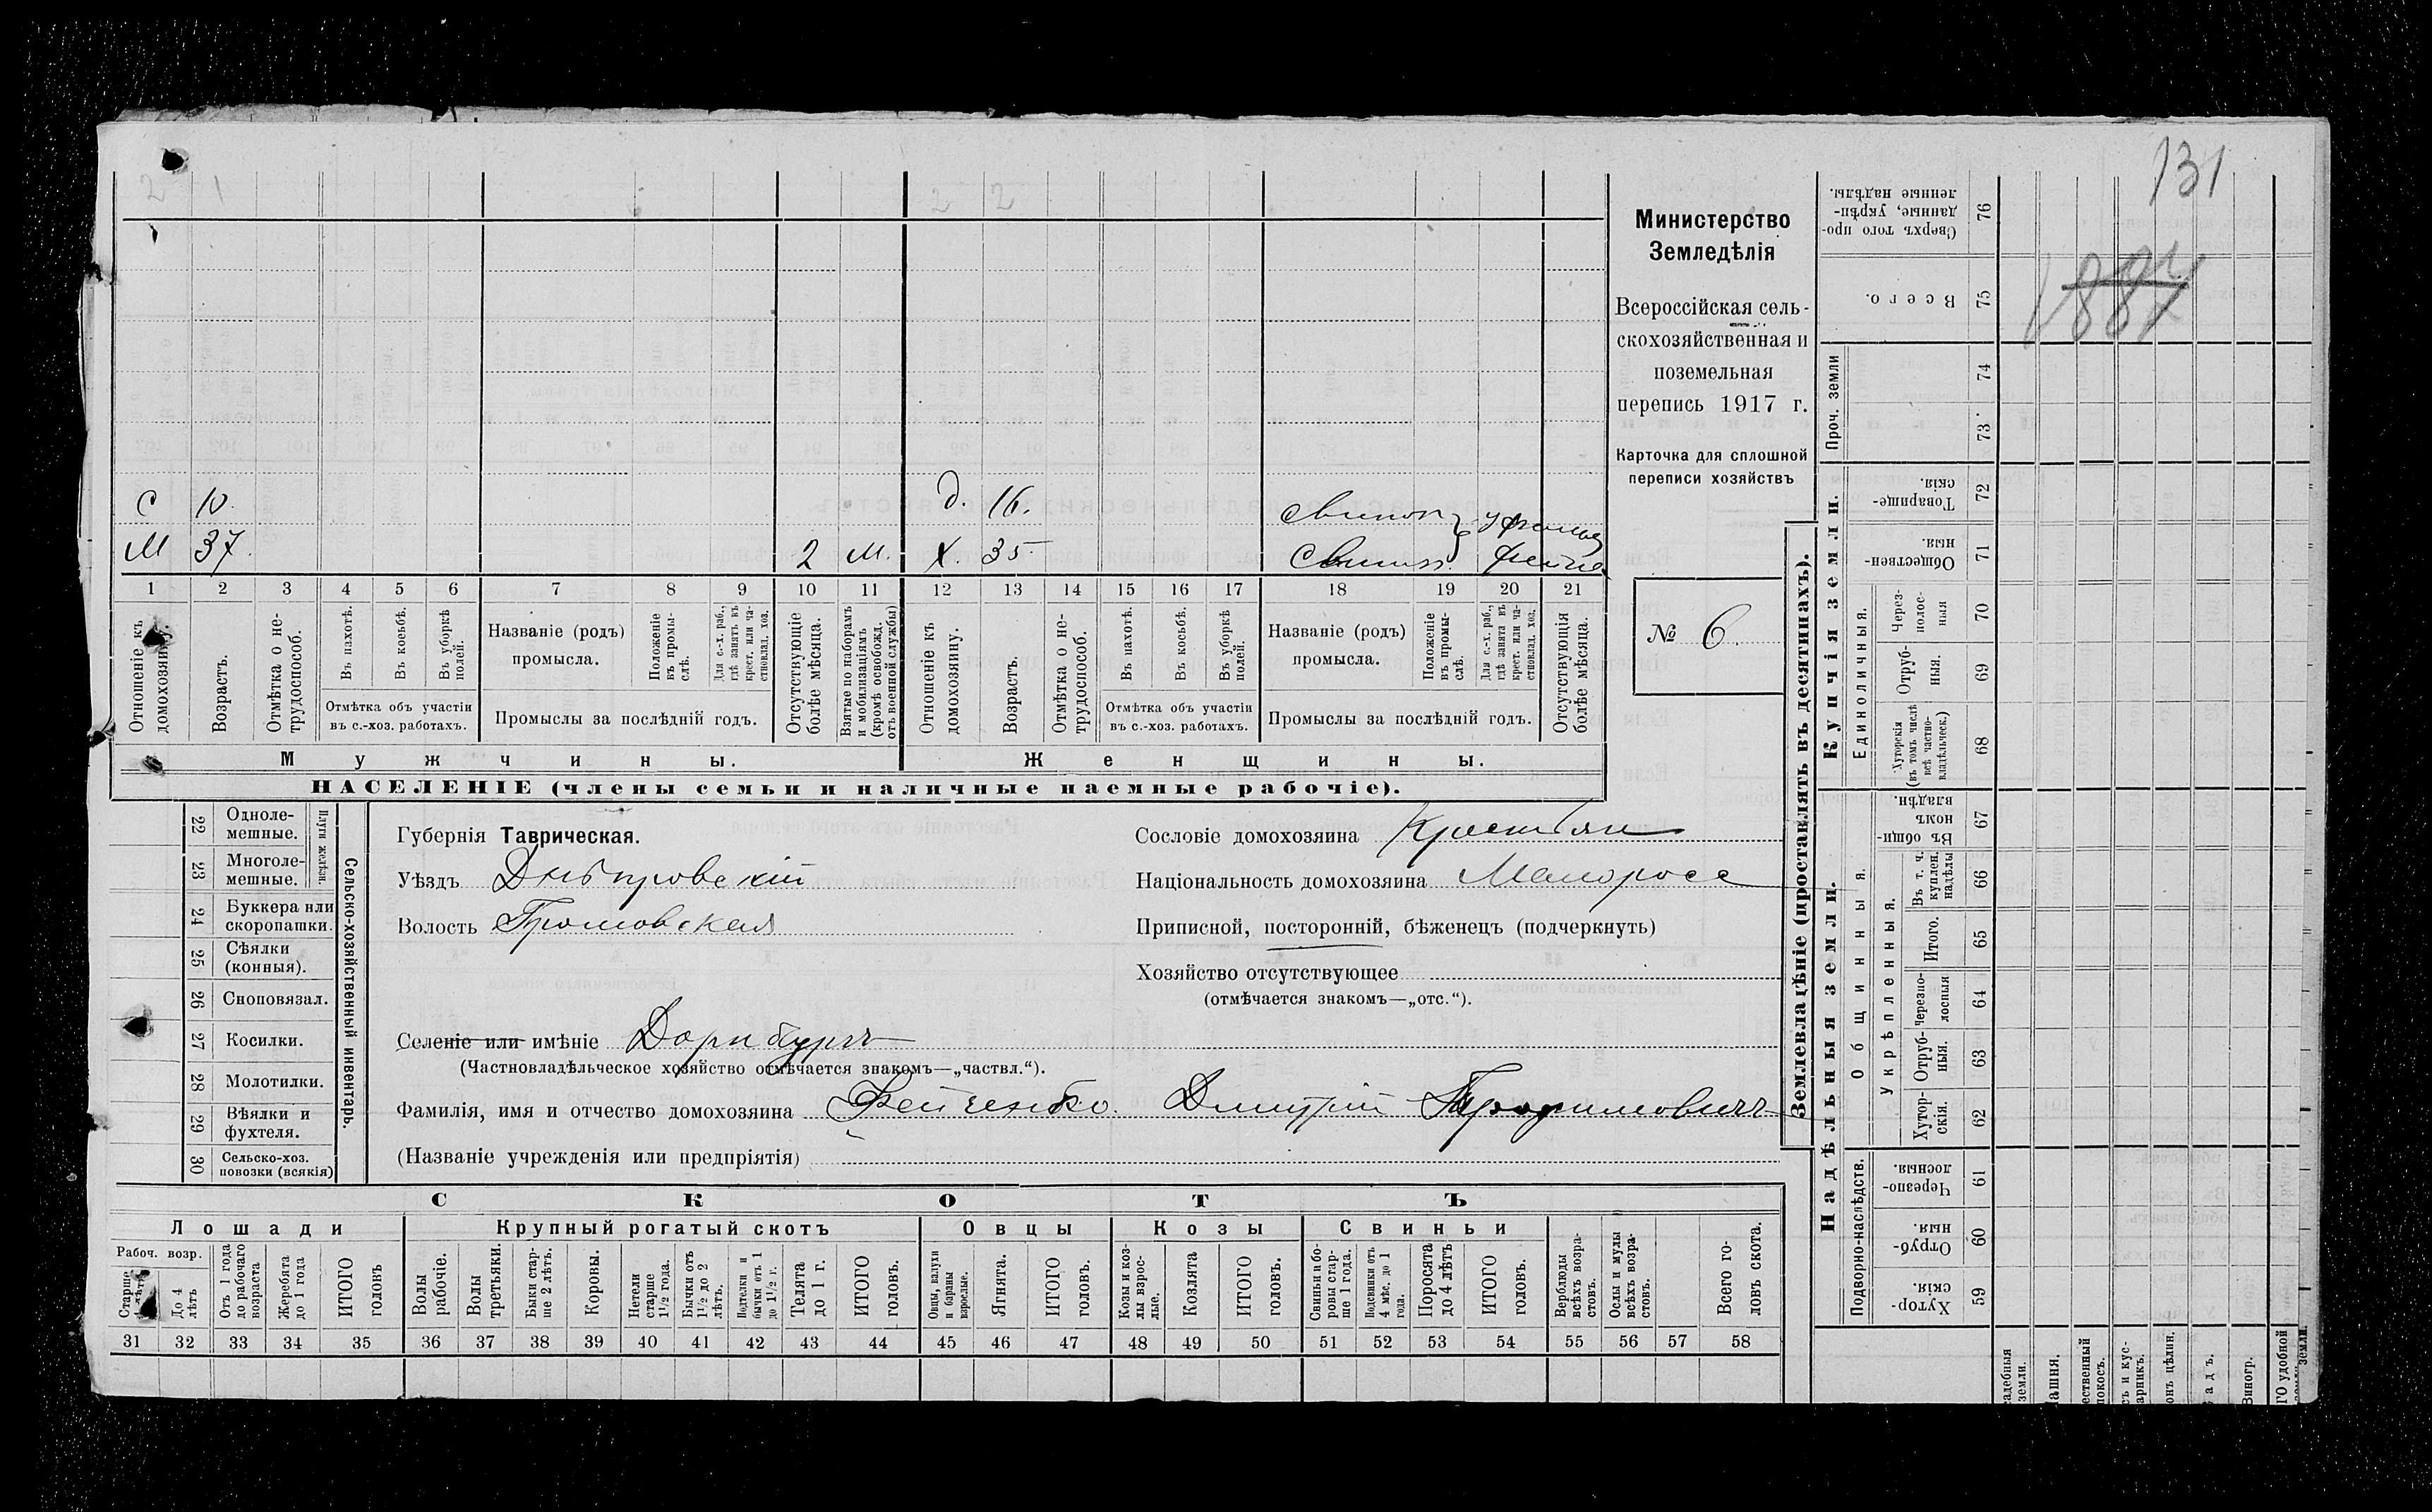 131
2 1 2 2
1887
Министерство
Земледѣлія
Всероссійская сель-
скохозяйственная и
поземельная
перепись 1917 г.
Карточка для сплошной
переписи хозяйствъ
№ 6.
С 10. д. 16.
М 37. 2 М. Х. 35
1 2 3 4 5 6 7 8 9 10 11 12 13 14 15 16 17 18 19 20 21
Отношеніе къ домохозяину.
Возрастъ.
Отмѣтка о не-
трудоспособ.
Въ пахотѣ.
Въ косьбѣ.
Въ уборкѣ
полей.
Отмѣтка объ участіи
въ с.-хоз. работахъ.
Названіе (родъ)
промысла.
Положеніе
въ промы-
слѣ.
Для с.-х. раб.,
гдѣ занятъ въ
крест. или ча-
стновлад. хоз.
Промыслы за послѣдній годъ.
Отсутствующіе
болѣе мѣсяца.
Взятые по наборамъ
и мобилизаціямъ
(кромѣ освобожд.
отъ военной службы)
Отношеніе къ
домохозяину.
Возрастъ.
Отмѣтка о не-
трудоспособ.
Въ пахотѣ.
Въ косьбѣ.
Въ уборкѣ
полей.
Отмѣтка объ участіи
въ с.-хоз. работахъ.
Названіе (родъ)
промысла.
Положеніе
въ промы-
слѣ.
Для с.-х. раб.,
гдѣ занята въ
крест. или ча-
стновлад. хоз.
Промыслы за послѣдній годъ.
Отсутствующія
болѣе мѣсяца.
Мужчины.
Женщины.
НАСЕЛЕНІЕ (члены семьи и наличные наемные рабочіе).
22 Одноле-
мешные.
23 Многоле-
мешные.
Плуги желѣзн.
24 Буккера или
скоропашки.
25 Сѣялки
(конныя).
26 Сноповязал.
27 Косилки.
28 Молотилки.
29 Вѣялки и
фухтеля.
30 Сельско-хоз.
повозки (всякія)
Сельско-хозяйственный инвентарь.
Губернія Таврическая.
Уѣздъ Днѣпровскій
Волость Громовская
Селеніе или имѣніе Дорнбургъ
(Частновладѣльческое хозяйство отмѣчается знакомъ—„частвл.“).
Фамилія, имя и отчество домохозяина Фейченко Дмитрій Трофимовичъ
(Названіе учрежденія или предпріятія)
Сословіе домохозяина Крестьян
Національность домохозяина Малоросс
Приписной, посторонній, бѣженецъ (подчеркнуть)
Хозяйство отсутствующее
(отмѣчается знакомъ—„отс.“).
СКОТЪ
Лошади
Рабоч. возр.
Старше
До 4
лѣтъ
Отъ 1 года
до рабочаго
возраста
Жеребята
до 1 года
ИТОГО
головъ
Крупный рогатый скотъ
Волы
рабочіе.
Волы
третьяки.
Быки стар-
ше 2 лѣтъ.
Коровы.
Нетели
старше
1½ года.
Бычки отъ
1½ до 2
лѣтъ.
Нетелки и
бычки отъ 1
до 1½ г.
Телята
до 1 г.
ИТОГО
головъ.
Овцы
Овцы, валухи
и бараны
взрослые.
Ягнята.
ИТОГО
головъ.
Козы
Козы и коз-
лы взрос-
лые.
Козлята
ИТОГО
головъ.
Свиньи
Свиньи и бо-
ровы стар-
ше 1 года.
Подсвинки отъ
4 мѣс. до 1
года.
Поросята
до 4 лѣтъ
ИТОГО
головъ.
Верблюды
всѣхъ возра-
стовъ.
Ослы и мулы
всѣхъ возра-
стовъ.
Всего го-
ловъ скота.
31 32 33 34 35 36 37 38 39 40 41 42 43 44 45 46 47 48 49 50 51 52 53 54 55 56 57 58
Землевладѣніе (проставлять въ десятинахъ).
Надѣльныя земли.
Купчія земли.
Проч. земли
Подворно-наслѣдств.
Общинныя.
Укрѣпленныя.
Единоличныя.
Сверхъ того про-
данные, укрѣп-
ленные надѣлы.
76
Всего.
75
74
73
Товарище-
скія.
72
Обществен-
ныя.
71
Через-
полос-
ныя
70
Отруб-
ныя.
69
Хуторскія
(въ томъ числѣ
всѣ частно-
владѣльческ.)
68
Въ общин-
номъ
владѣн.
67
Въ т. ч.
куплен.
надѣлы
66
Итого.
65
Черезпо-
лосныя
64
Отруб-
ныя.
63
Хутор-
скія.
62
Черезпо-
лосныя.
61
Отруб-
ныя.
60
Хутор-
скія.
59
Виногр.